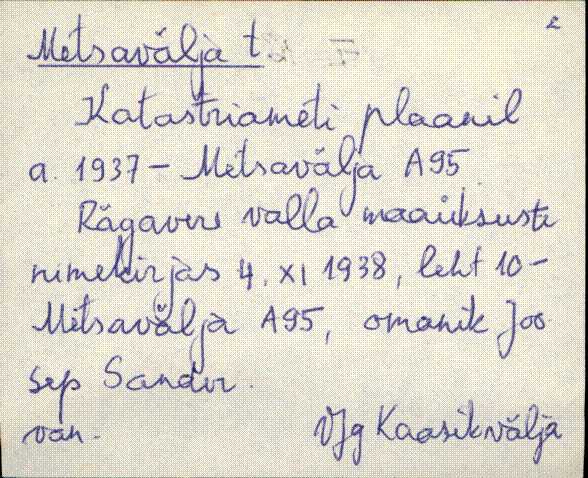 Metsavälja t.
Katastriameti plaanil
a. 1937 - Metsavälja A95
Rägavere valla maaüksuste
nimekirjas 4. XI 1938, leht 10 -
Metsavälja A95, omanik Joo
sep Sander.
van. VJg Kaasikvälja